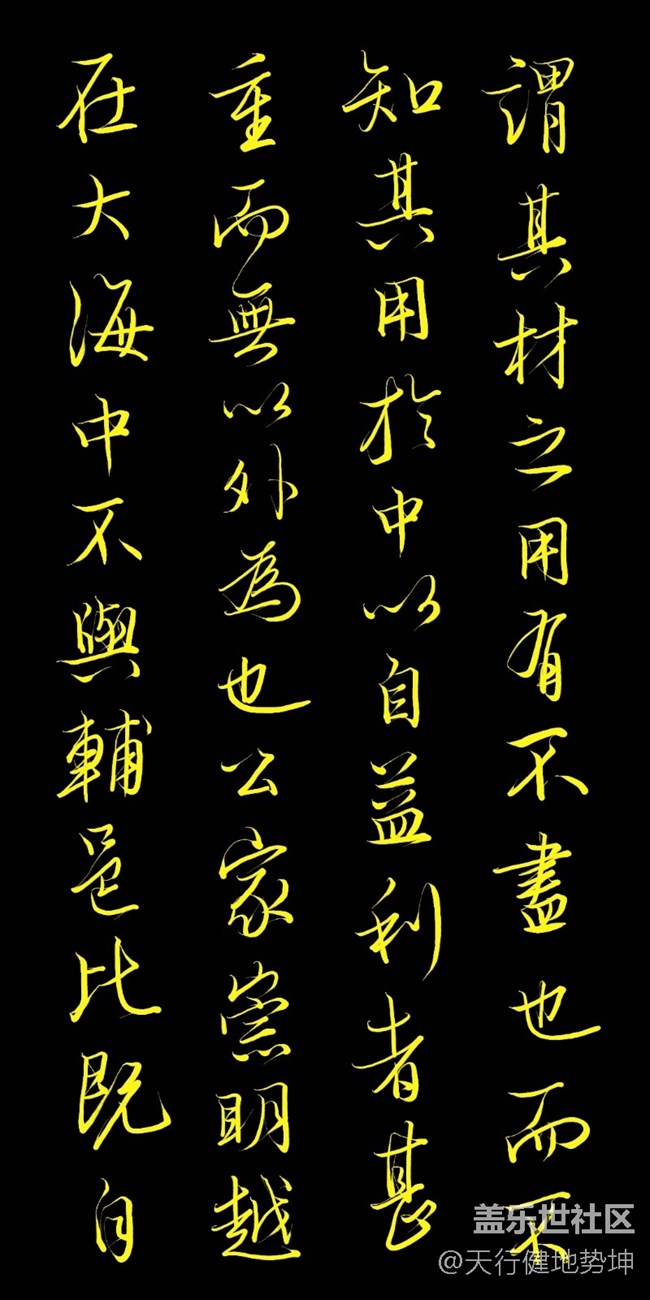 謂其材之用有不盡也而不
知其用於中以自益利者甚
重而無以外為也公家崇明越
在大海中不與輔邑比既自
盖乐世社区
@天行健地势坤